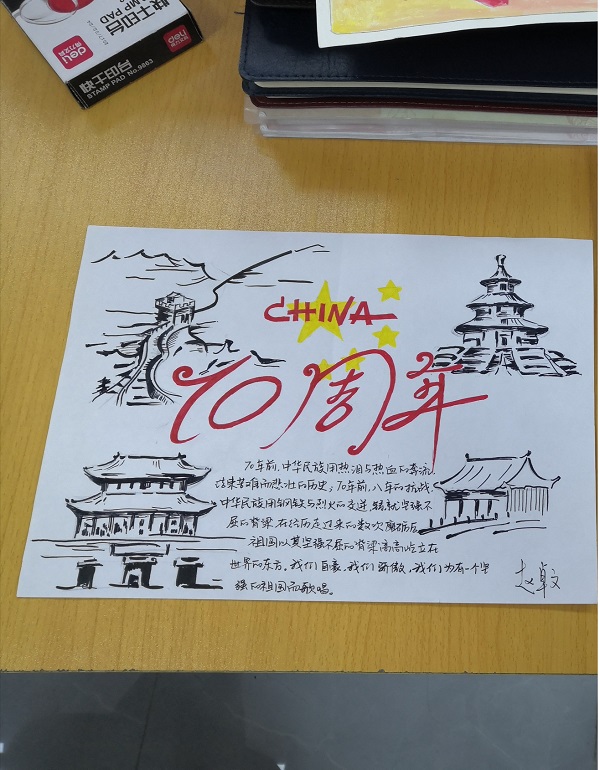 快干印台
STAMP PAD
deli
得力文具
deli
得力文具
快干印台
STAMP PAD No.9863
CHINA
70周年
70年前,中华民族用热泪与热血的奔流,
结束苦难而悲壮的历史;70年前,八年的抗战,
中华民族用钢铁与烈火的交迸,铸就坚强不
屈的脊梁。在经历过来的数次磨砺后
祖国以其坚强不屈的脊梁高高屹立在
世界的东方。我们自豪,我们骄傲,我们为有一个坚
强的祖国而歌唱。
赵卓文